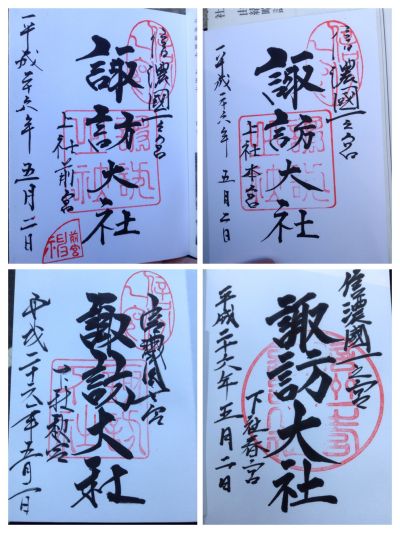 信濃國一之宮
諏訪大社
上社前宮
平成廿六年五月二日
前宮
信濃國一之宮
諏訪大社
上社本宮
平成廿六年五月二日
信濃國一之宮
諏訪大社
下社秋宮
平成二十六年五月二日
信濃國一之宮
諏訪大社
下社春宮
平成二十六年五月二日